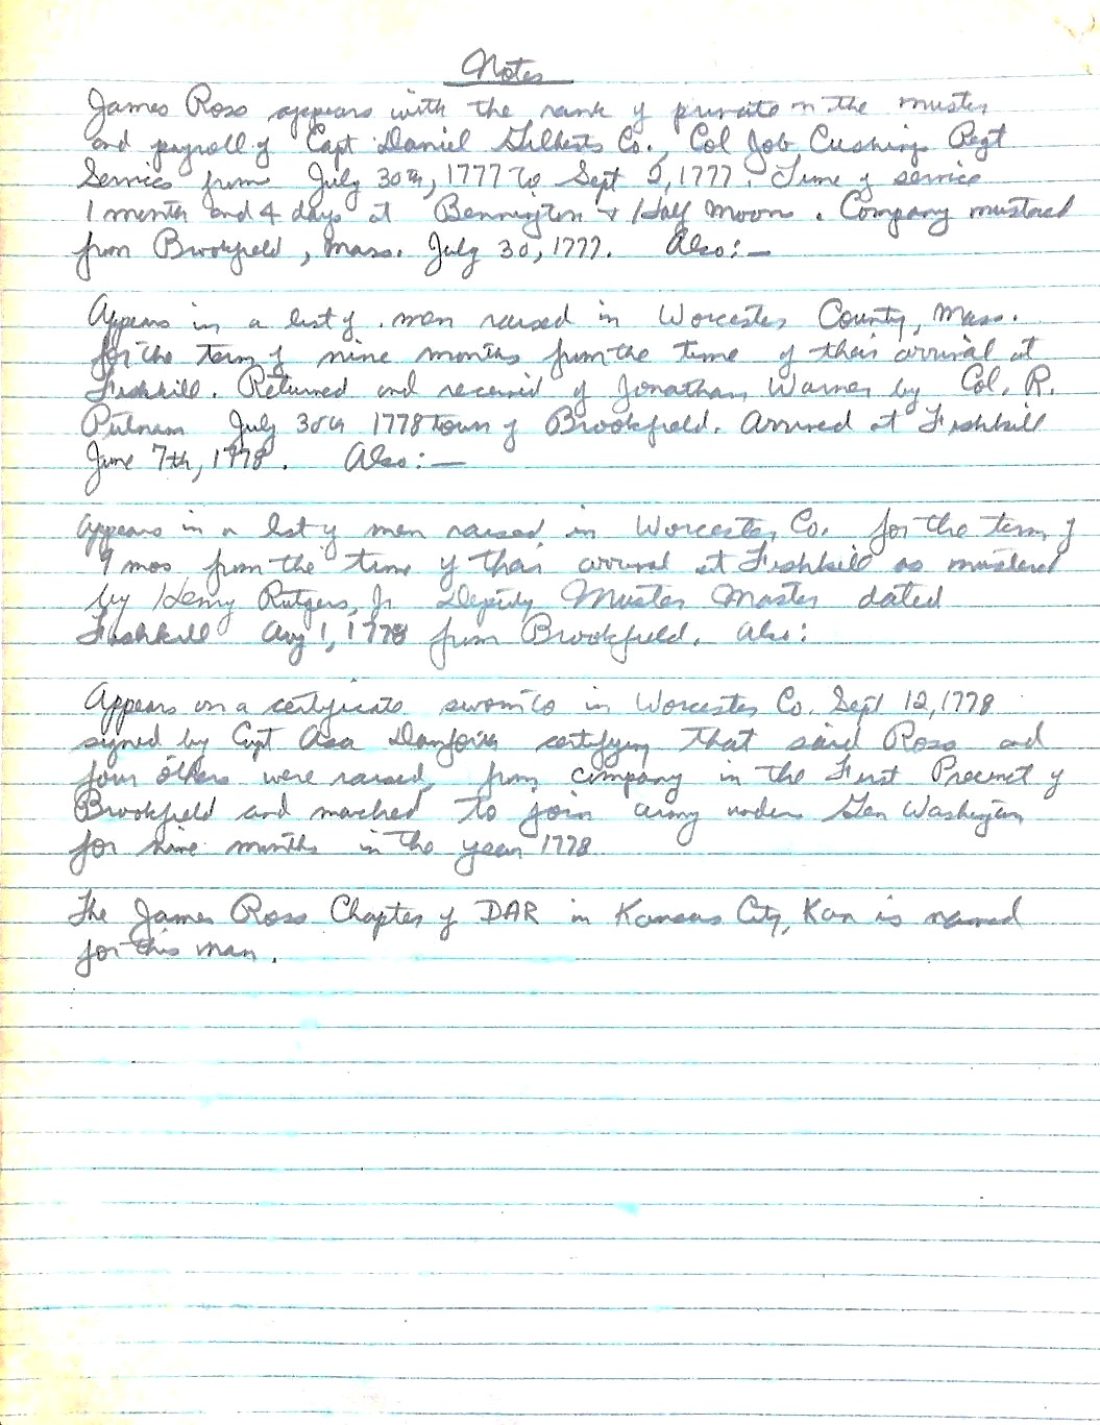 Notes
James Ross appears with the rank of private on the muster
and payroll of Capt Daniel Gilberts Co., Col Job Cushings Regt
Service from July 30th, 1777 to Sept 2, 1777. Time of service
1 month and 4 days at Bennington & Half Moon. Company mustered
from Brookfield, Mass. July 30, 1777. Also:—
Appears in a list of men raised in Worcester County, Mass.
for the term of nine months from the time of their arrival at
Fishkill. Returned and received of Jonathan Warner by Col. R.
Putnam July 30th 1778 town of Brookfield. Arrived at Fishkill
June 7th, 1778. Also:—
Appears in a list of men raised in Worcester Co. for the term of
9 mos from the time of their arrival at Fishkill as mustered
by Henry Rutgers, Jr Deputy Muster Master dated
Fishkill Aug 1, 1778 from Brookfield. Also:
Appears on a certificate sworn to in Worcester Co. Sept 12, 1778
signed by Capt Asa Danforth certifying that said Ross and
four others were raised from company in the First Precinct of
Brookfield and marched to join army under Gen Washington
for nine months in the year 1778
The James Ross Chapter of DAR in Kansas City, Kan is named
for this man.